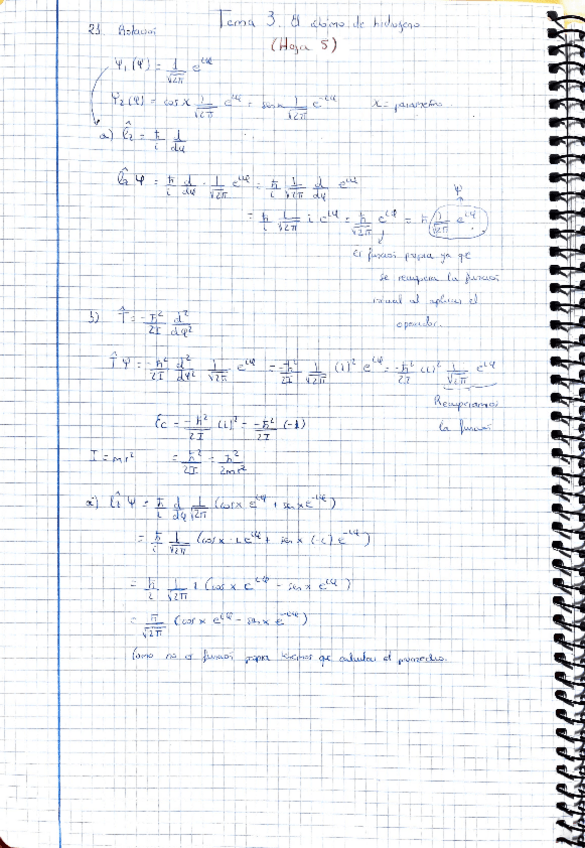 Tema 3. El átomo de hidrógeno
21 Rotación
(Hoja 5)
Ψ₁(φ) = 1/√2π e^{iφ}
Ψ₂(φ) = cos x 1/√2π e^{iφ} + sen x 1/√2π e^{-iφ} x = parámetro
a) L̂z = ħ/i d/dφ
L̂z Ψ = ħ/i d/dφ · 1/√2π e^{iφ} = ħ/i 1/√2π d/dφ e^{iφ}
Ψ
= ħ/i 1/√2π i e^{iφ} = ħ/√2π e^{iφ} = ħ 1/√2π e^{iφ}
Es función propia ya qe
se recupera la función
inicial al aplicar el
operador.
b) T̂ = -ħ²/2I d²/dφ²
T̂Ψ = -ħ²/2I d²/dφ² 1/√2π e^{iφ} = -ħ²/2I 1/√2π (i)² e^{iφ} = -ħ²/2I (i)² 1/√2π e^{iφ}
Recuperamos
la función
Ec = -ħ²/2I (i)² = -ħ²/2I (-1)
I = mr² = ħ²/2I = ħ²/2mr²
L̂z Ψ = ħ/i d/dφ 1/√2π (cos x e^{iφ} + sen x e^{-iφ})
= ħ/i 1/√2π (cos x · i e^{iφ} + sen x (-i) e^{-iφ})
= ħ/i 1/√2π i (cos x e^{iφ} - sen x e^{-iφ})
= ħ/√2π (cos x e^{iφ} - sen x e^{-iφ})
Como no es función propia tenemos qe calcular el promedio.